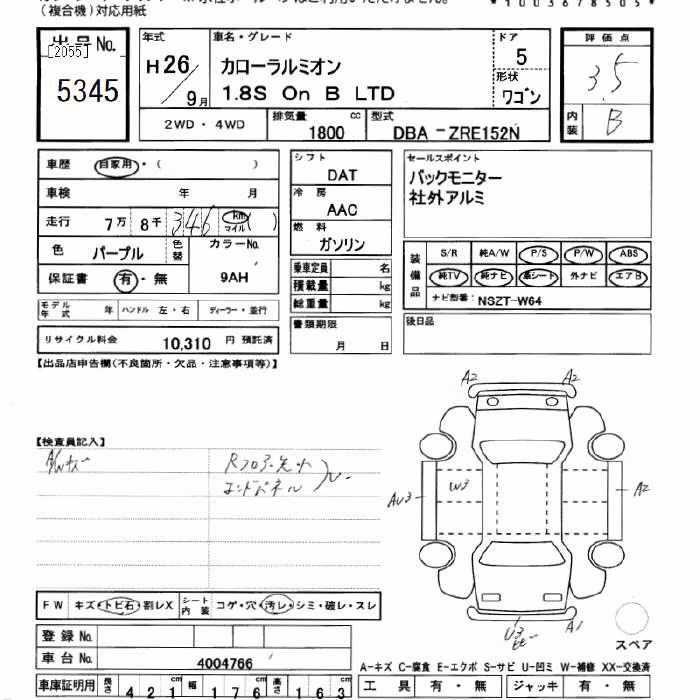 (複合機)対応用紙
*1003678505*
出品No.
[2055]
5345
年式
H26/9月
車名・グレード
カローラルミオン
1.8S On B LTD
ドア
5
形状
ワゴン
評価点
3.5
内装
B
2WD・4WD
排気量
1800 cc
型式
DBA-ZRE152N
車歴 自家用・( )
車検 年 月
走行 7万8千346 km マイル ( )
色 パープル 色替 カラーNo. 9AH
保証書 有・無
モデル年式 年 ハンドル 左・右 ディーラー・並行
リサイクル料金 10,310 円 預託済
シフト
DAT
冷房
AAC
燃料
ガソリン
乗車定員 名
積載量 kg
総重量 kg
書類期限
月 日
セールスポイント
バックモニター
社外アルミ
装備品
S/R 純A/W P/S P/W ABS
純TV 純ナビ 革シート 外ナビ エアB
ナビ型番: NSZT-W64
後日品
【出品店申告欄(不良箇所・欠品・注意事項等)】
【検査員記入】
A/Wキズ
Rフロア先
エンドパネル
A2 A2
AU3
W3
A2
U3
A1
スペア
FW キズ・トビ石・割レX シート内装 コゲ・穴・汚レ・シミ・破レ・スレ
登録No.
車台No. 4004766
車庫証明用 長さ 421 cm 幅 176 cm 高さ 163 cm
A-キズ C-腐食 E-エクボ S-サビ U-凹ミ W-補修 XX-交換済
工具 有・無 ジャッキ 有・無